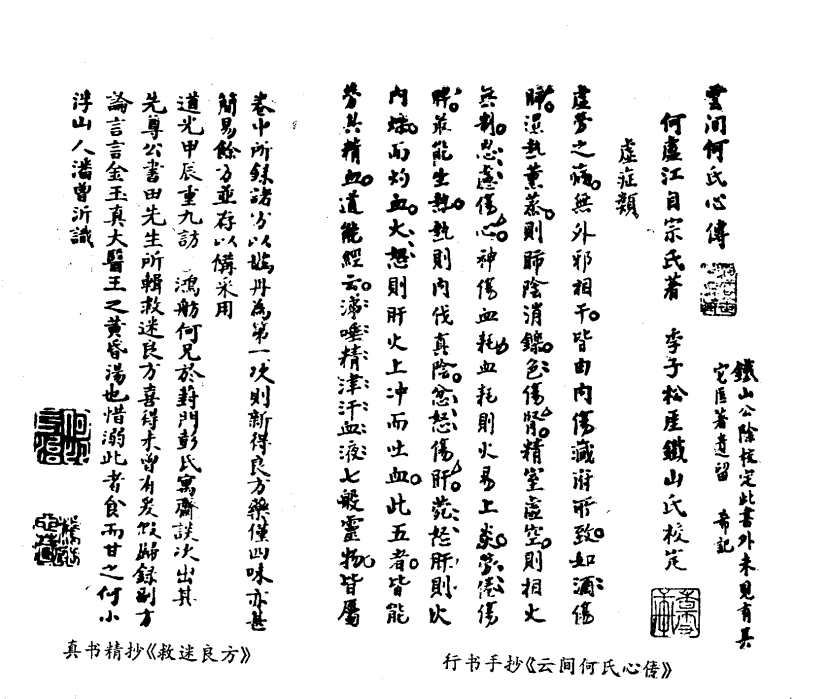 雲间何氏心傳
何盧江自宗氏著 季子松厓鐵山氏校定
鐵山公除核定此書外未見有其
它医著遗留 希記
虚症類
虚劳之病無外邪相干皆由内傷藏府所致如酒傷
肺濕熱薰蒸則肺陰消鑠色傷腎精室虚空則相火
無制思慮傷心神傷血耗血耗則火易上炎劳倦傷
脾最能生熱熱則内伐真陰忿怒傷肝菀怒肝則火
内熾而灼血大怒則肝火上冲而吐血此五者皆能
劳其精血道能經云涕唾精津汗血液七般靈物皆屬
行书手抄《云间何氏心傳》
卷中所録諸方以丹為第一次則新得良方藥僅四味亦甚
簡易餘方並存以備采用
道光甲辰重九訪 鴻舫何兄於葑門彭氏寓齋談次出其
先尊公書田先生所輯救迷良方喜得未曾有爰假歸録副方
論言言金玉真大醫王之黄昏湯也惜溺此者食而甘之何小
浮山人潘曾沂識
真书精抄《救迷良方》